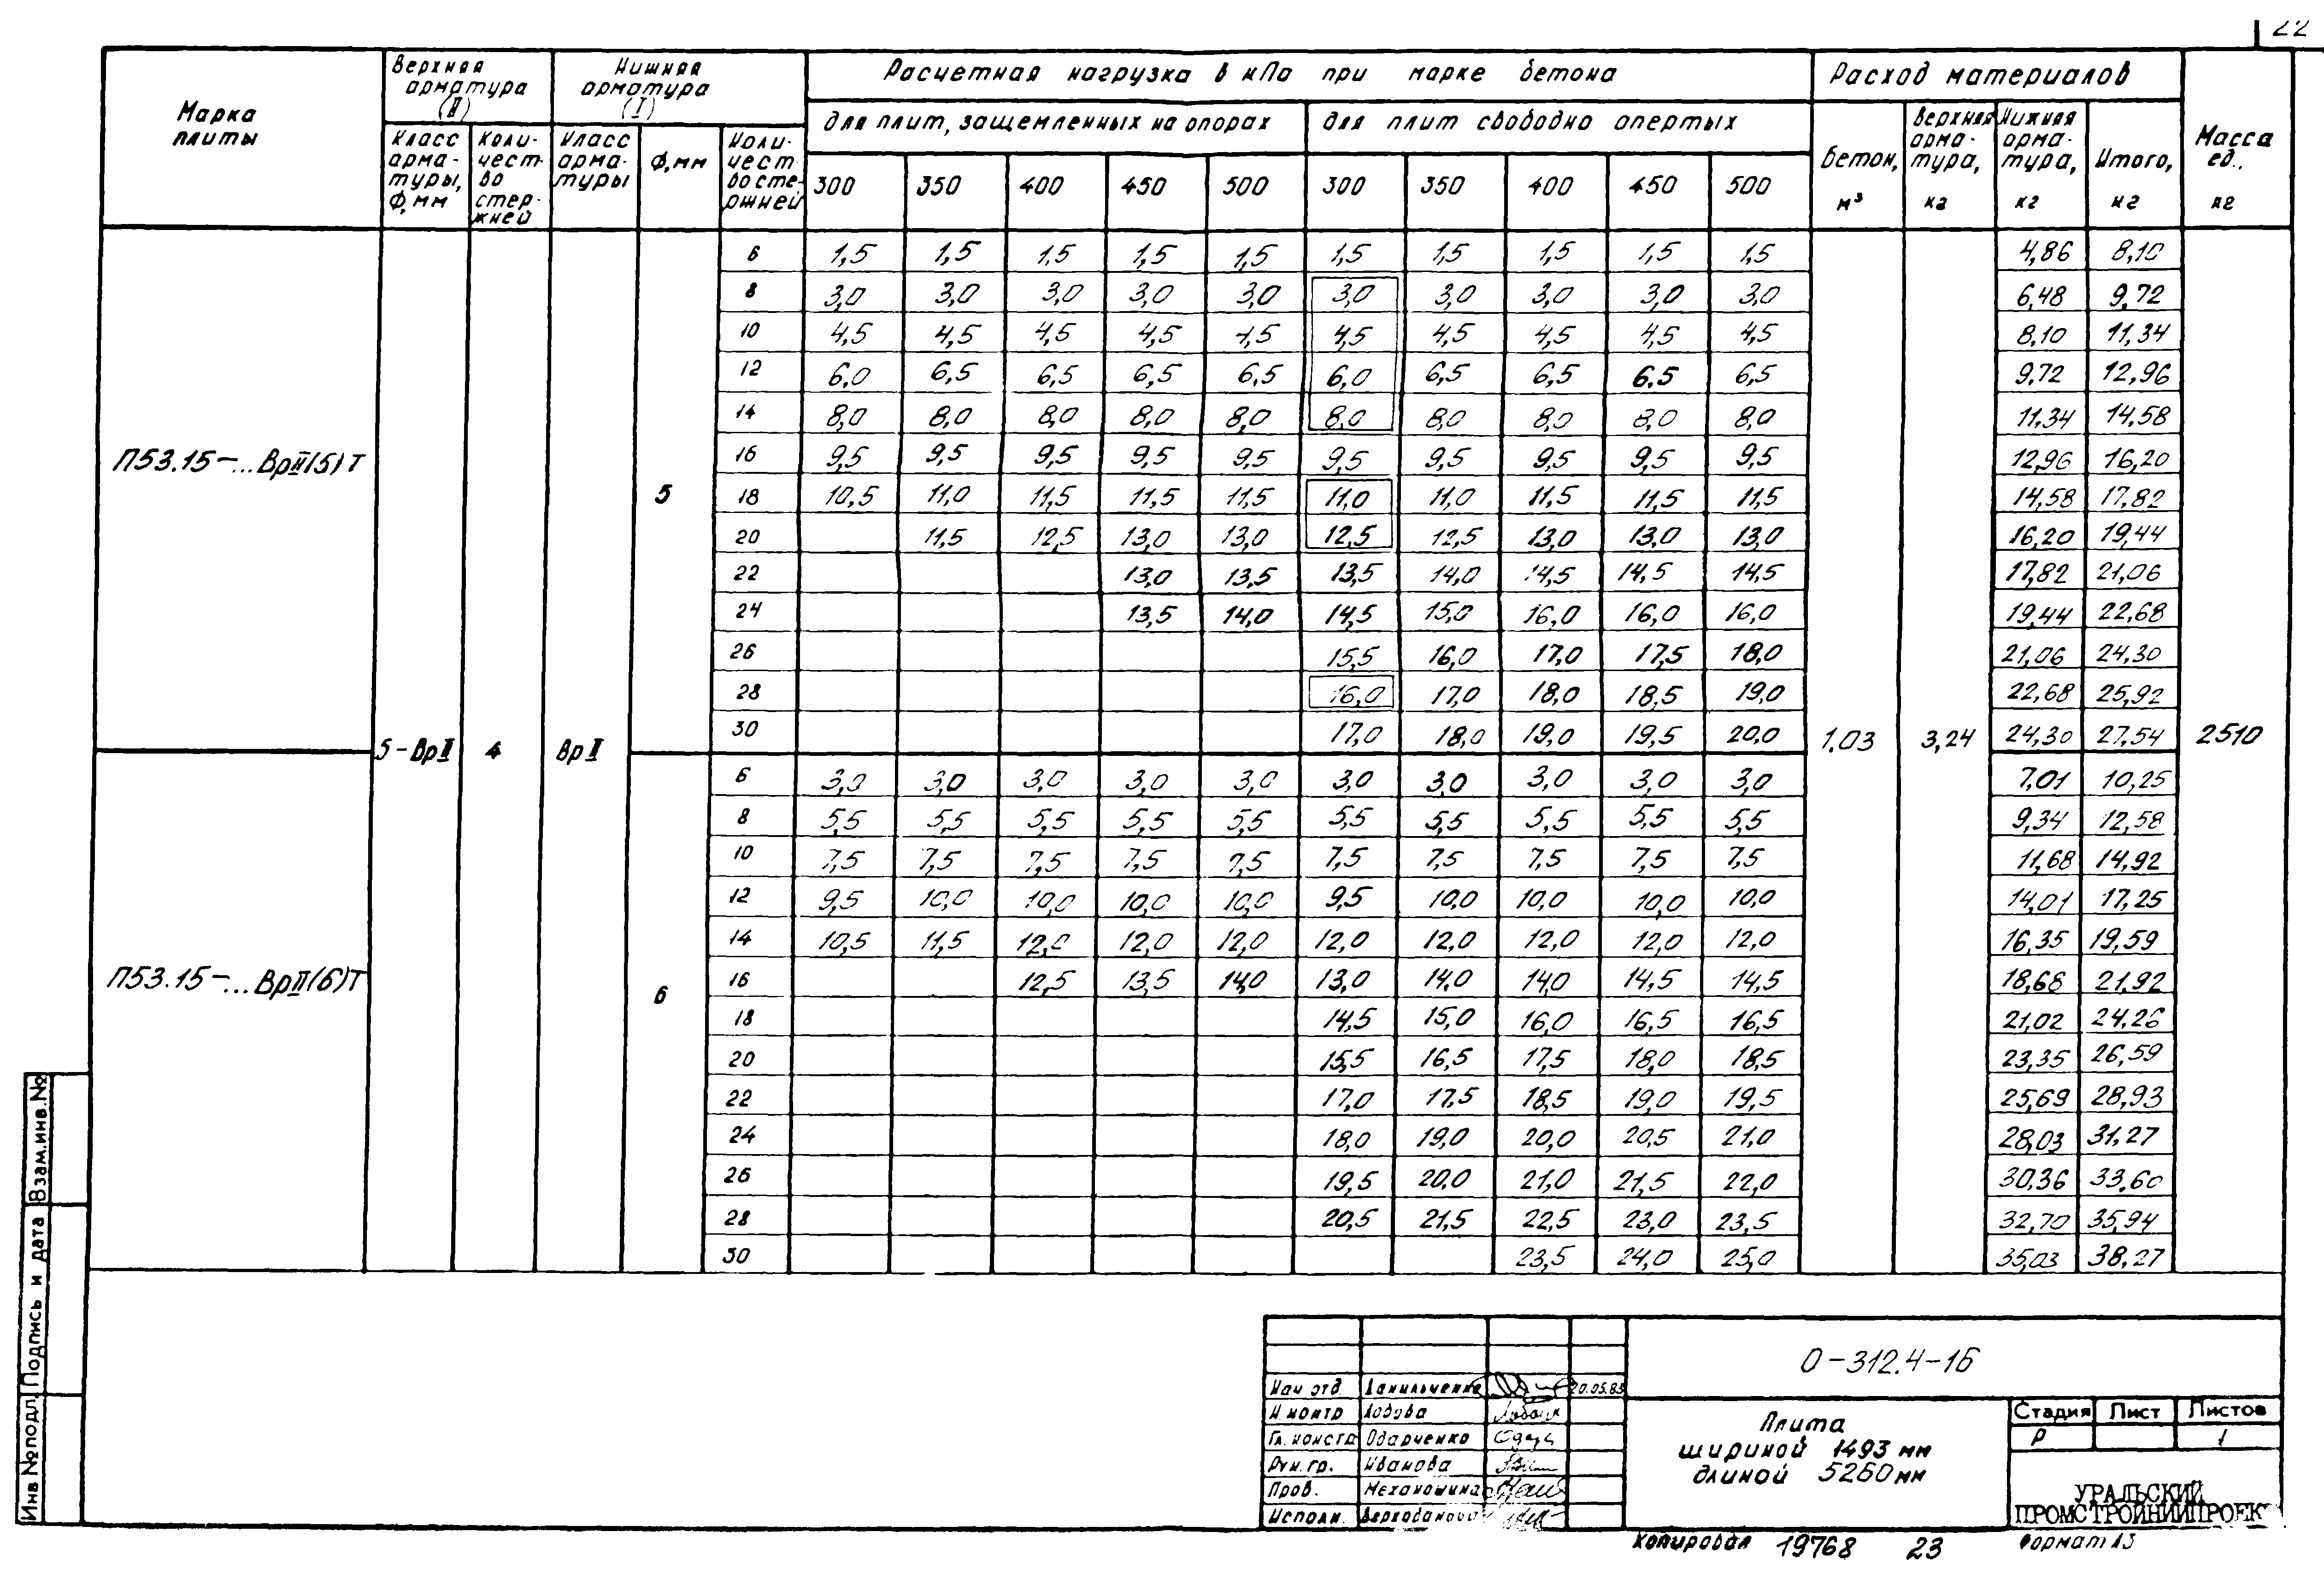 22
Марка плиты
Верхняя арматура (II)
Нижняя арматура (I)
Расчетная нагрузка в кПа при марке бетона
Расход материалов
Масса ед., кг
для плит, защемленных на опорах
для плит свободно опертых
Класс арма-туры, Ф, мм
Коли-чест-во стер-жней
Класс арма-туры
Ф, мм
Коли-чест-во сте-ржней
300 350 400 450 500 300 350 400 450 500
Бетон, м³
Верхняя арма-тура, кг
Нижняя арма-тура, кг
Итого, кг
П53.15-...ВрII(5)Т
5-ВрII 4 ВрII 5 1,03 3,24 2510
6 1,5 1,5 1,5 1,5 1,5 1,5 1,5 1,5 1,5 1,5 4,86 8,10
8 3,0 3,0 3,0 3,0 3,0 3,0 3,0 3,0 3,0 3,0 6,48 9,72
10 4,5 4,5 4,5 4,5 4,5 4,5 4,5 4,5 4,5 4,5 8,10 11,34
12 6,0 6,5 6,5 6,5 6,5 6,0 6,5 6,5 6,5 6,5 9,72 12,96
14 8,0 8,0 8,0 8,0 8,0 8,0 8,0 8,0 8,0 8,0 11,34 14,58
16 9,5 9,5 9,5 9,5 9,5 9,5 9,5 9,5 9,5 9,5 12,96 16,20
18 10,5 11,0 11,5 11,5 11,5 11,0 11,0 11,5 11,5 11,5 14,58 17,82
20 11,5 12,5 13,0 13,0 12,5 12,5 13,0 13,0 13,0 16,20 19,44
22 13,0 13,5 13,5 14,0 14,5 14,5 14,5 17,82 21,06
24 13,5 14,0 14,5 15,0 16,0 16,0 16,0 19,44 22,68
26 15,5 16,0 17,0 17,5 18,0 21,06 24,30
28 16,0 17,0 18,0 18,5 19,0 22,68 25,92
30 17,0 18,0 19,0 19,5 20,0 24,30 27,54
П53.15-...ВрII(6)Т
6
6 3,0 3,0 3,0 3,0 3,0 3,0 3,0 3,0 3,0 3,0 7,01 10,25
8 5,5 5,5 5,5 5,5 5,5 5,5 5,5 5,5 5,5 5,5 9,34 12,58
10 7,5 7,5 7,5 7,5 7,5 7,5 7,5 7,5 7,5 7,5 11,68 14,92
12 9,5 10,0 10,0 10,0 10,0 9,5 10,0 10,0 10,0 10,0 14,01 17,25
14 10,5 11,5 12,0 12,0 12,0 12,0 12,0 12,0 12,0 12,0 16,35 19,59
16 12,5 13,5 14,0 13,0 14,0 14,0 14,5 14,5 18,68 21,92
18 14,5 15,0 16,0 16,5 16,5 21,02 24,26
20 15,5 16,5 17,5 18,0 18,5 23,35 26,59
22 17,0 17,5 18,5 19,0 19,5 25,69 28,93
24 18,0 19,0 20,0 20,5 21,0 28,03 31,27
26 19,5 20,0 21,0 21,5 22,0 30,36 33,60
28 20,5 21,5 22,5 23,0 23,5 32,70 35,94
30 23,5 24,0 25,0 35,03 38,27
Инв № подл. Подпись и дата Взам.инв.№
О-312.4-1Б
Нач отд. Данильченко 20.05.83
Н контр Лобова
Гл. констр Одарченко
Рук. гр. Иванова
Пров. Механошина
Исполн.
Плита
шириной 1493 мм
длиной 5260 мм
Стадия Лист Листов
Р 1
УРАЛЬСКИЙ
ПРОМСТРОЙНИИПРОЕКТ
Копировал 19768 23 Формат А3